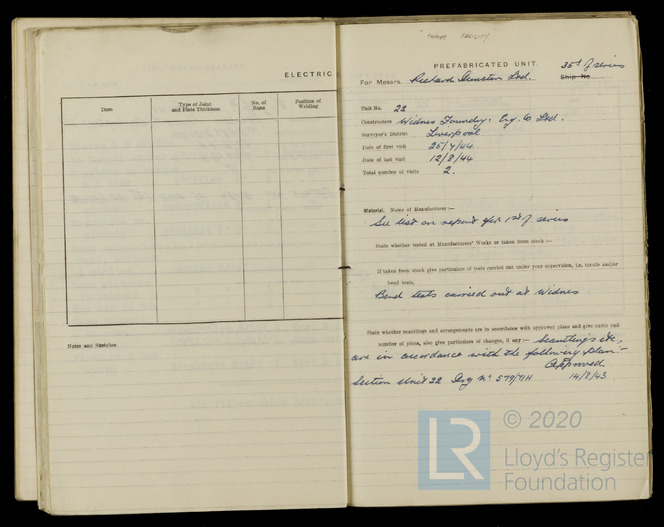 ELECTRIC
Date
Type of Joint
and Plate Thickness
No. of
Runs
Position of
Welding
Notes and Sketches
FACILITY"
PREFABRICATED UNIT.
35th of series
For Messrs. Richard Dunston Ltd.
Ship No.
Unit No. 22
Constructors Widnes Foundry & Eng. Co Ltd.
Surveyor's District Liverpool
Date of first visit 25/7/44
Date of last visit 12/8/44
Total number of visits 2.
Material. Name of Manufacturer:—
See list on report for 1st of series
State whether tested at Manufacturers' Works or taken from stock:—
If taken from stock give particulars of tests carried out under your supervision, i.e. tensile and/or
bend tests.
Bend tests carried out at Widnes
State whether scantlings and arrangements are in accordance with approved plans and give name and
number of plans, also give particulars of changes, if any:— Scantlings etc,
are in accordance with the following plan:-
Approved
Section Unit 22 Drg No 579/71H 14/8/43.
© 2020
LR
Lloyd's Register
Foundation